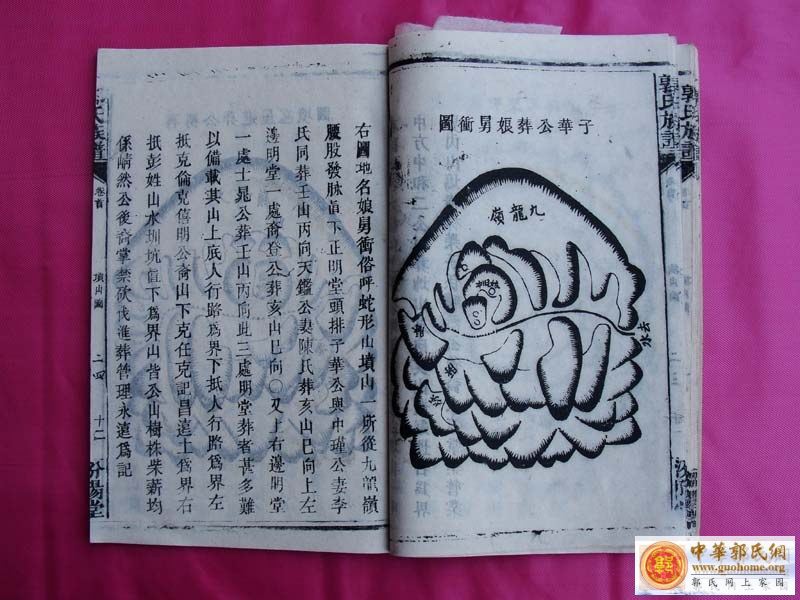 子華公葬娘舅衝圖
九龍嶺
去水
郭氏族譜
右圖地名娘舅衝俗呼蛇形山墳山一所從九龍嶺
腰股發脉直下正明堂頭排子華公與中瑾公妻李
氏同葬壬山丙向天鑑公妻陳氏葬亥山巳向上左
邊明堂一處裔登公葬亥山巳向〇又上右邊明堂
一處士晃公葬壬山丙向此三處明堂葬者甚多難
以備載其山上底人行路爲界下抵人行路爲界左
抵克倫克僖明公裔山下克任克記昌遠土爲界右
抵彭姓山水圳坑直下爲界山皆公山樹株柴薪均
係嵴然公後裔掌禁砍伐進葬管理永遠爲記
氏族譜
卷首
墳山圖
二四
十二
汾陽堂
中華郭氏網
www.guohome.org
郭氏网上家园